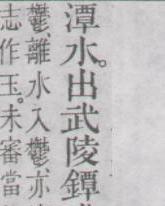 潭水。出武陵鐔
鬱、離水入鬱、亦
志作玉。未審當